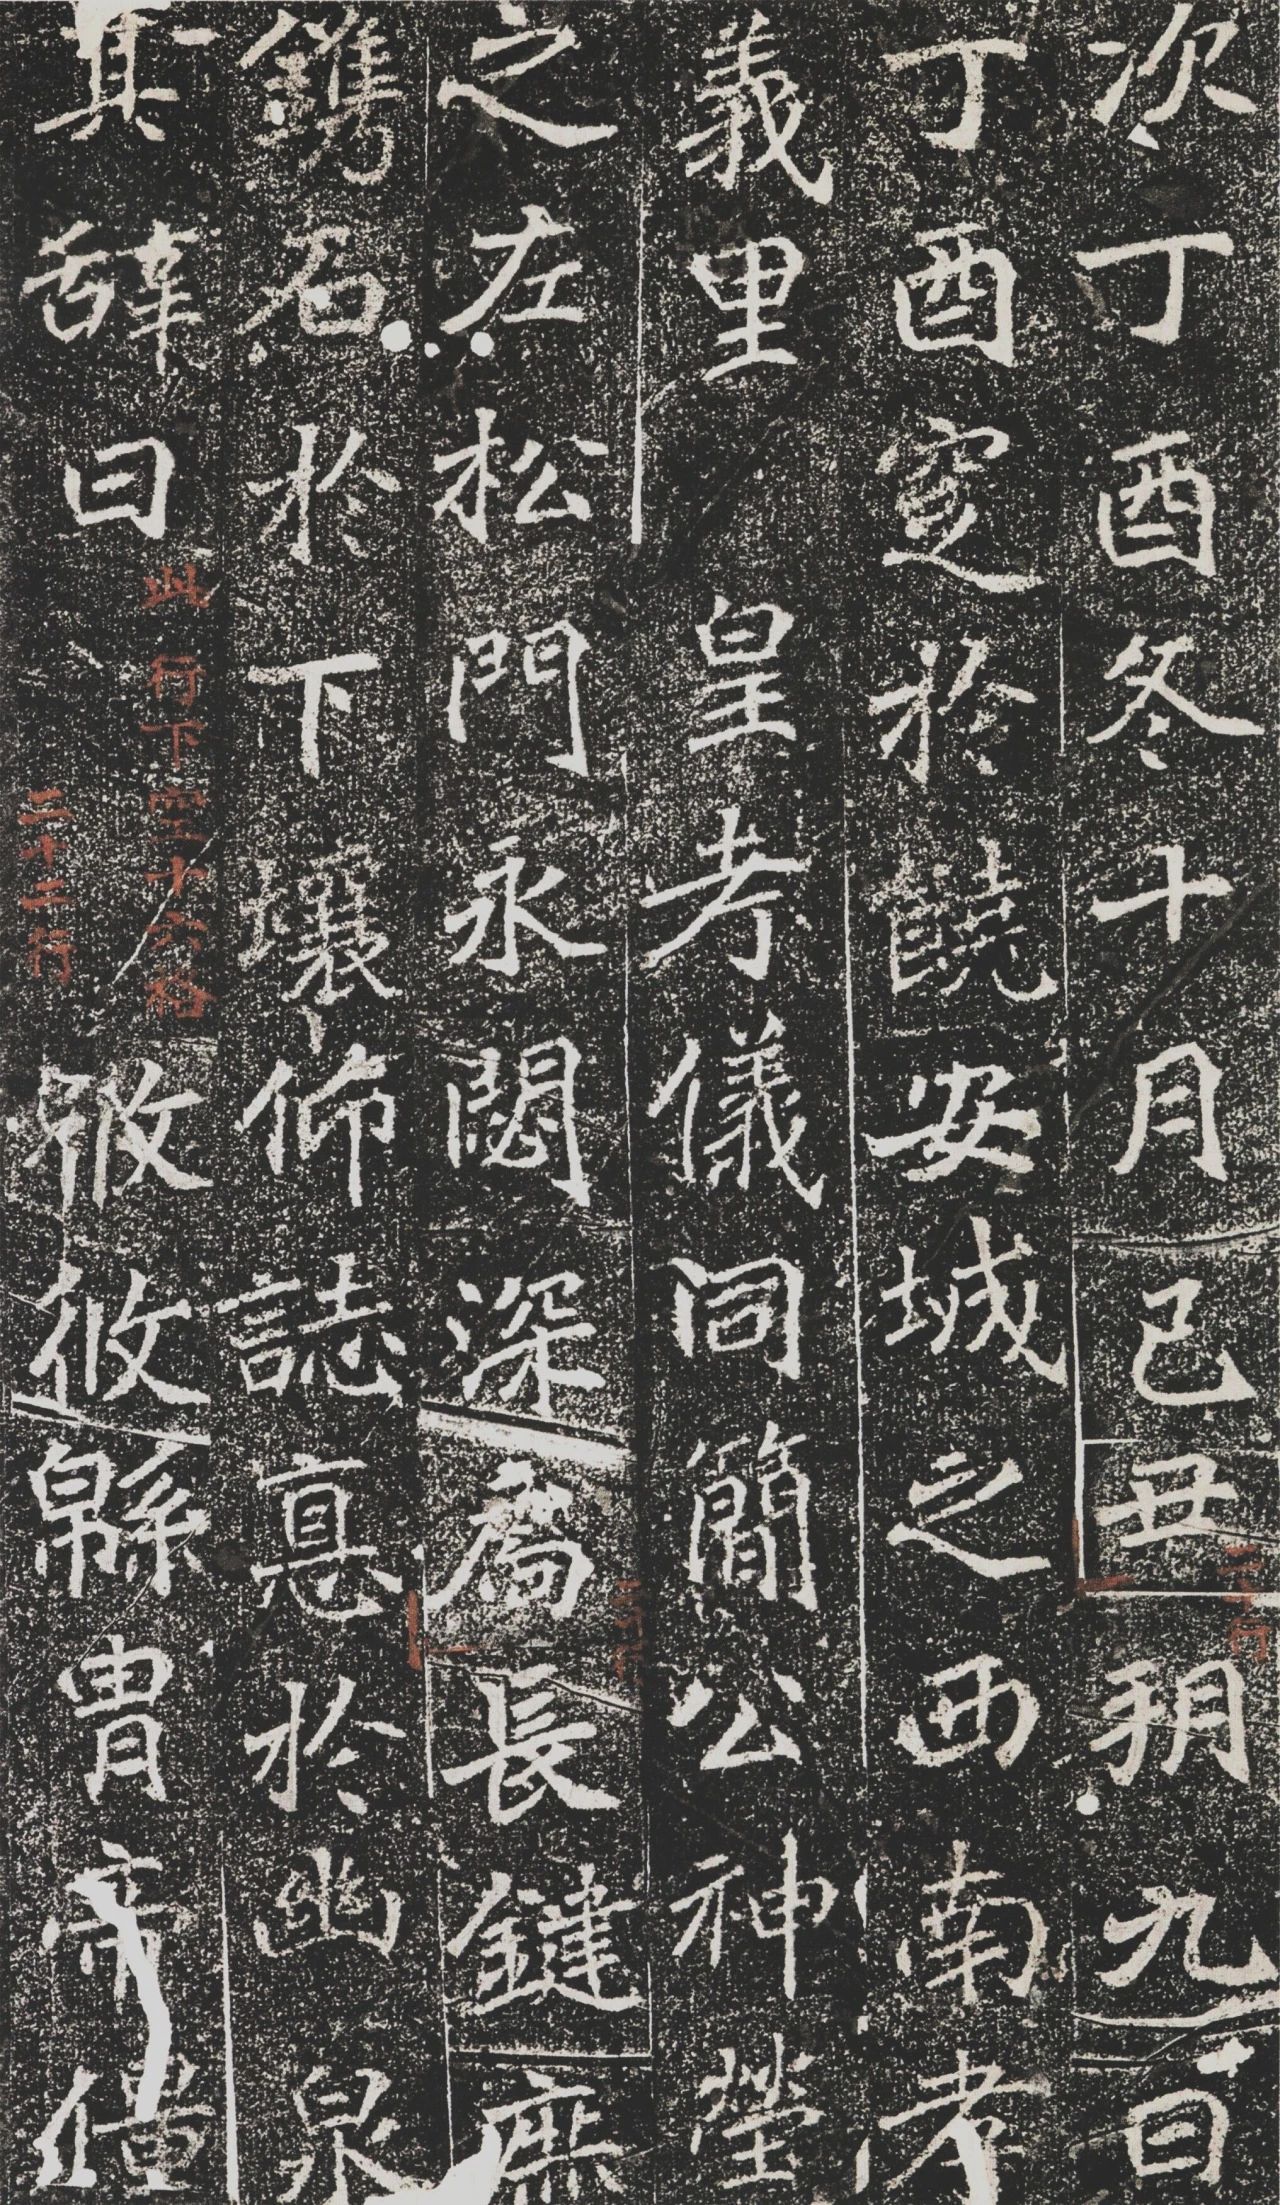 次丁酉冬十月己丑朔九日
丁酉窆於饒安城之西南孝
義里皇考儀同簡公神塋
之左松門永閟深扃長鍵庶
鐫石於下壤仰誌惪於幽泉
其辭曰
攸攸緜胄帝
此行下空十六格
二十二行
二十行